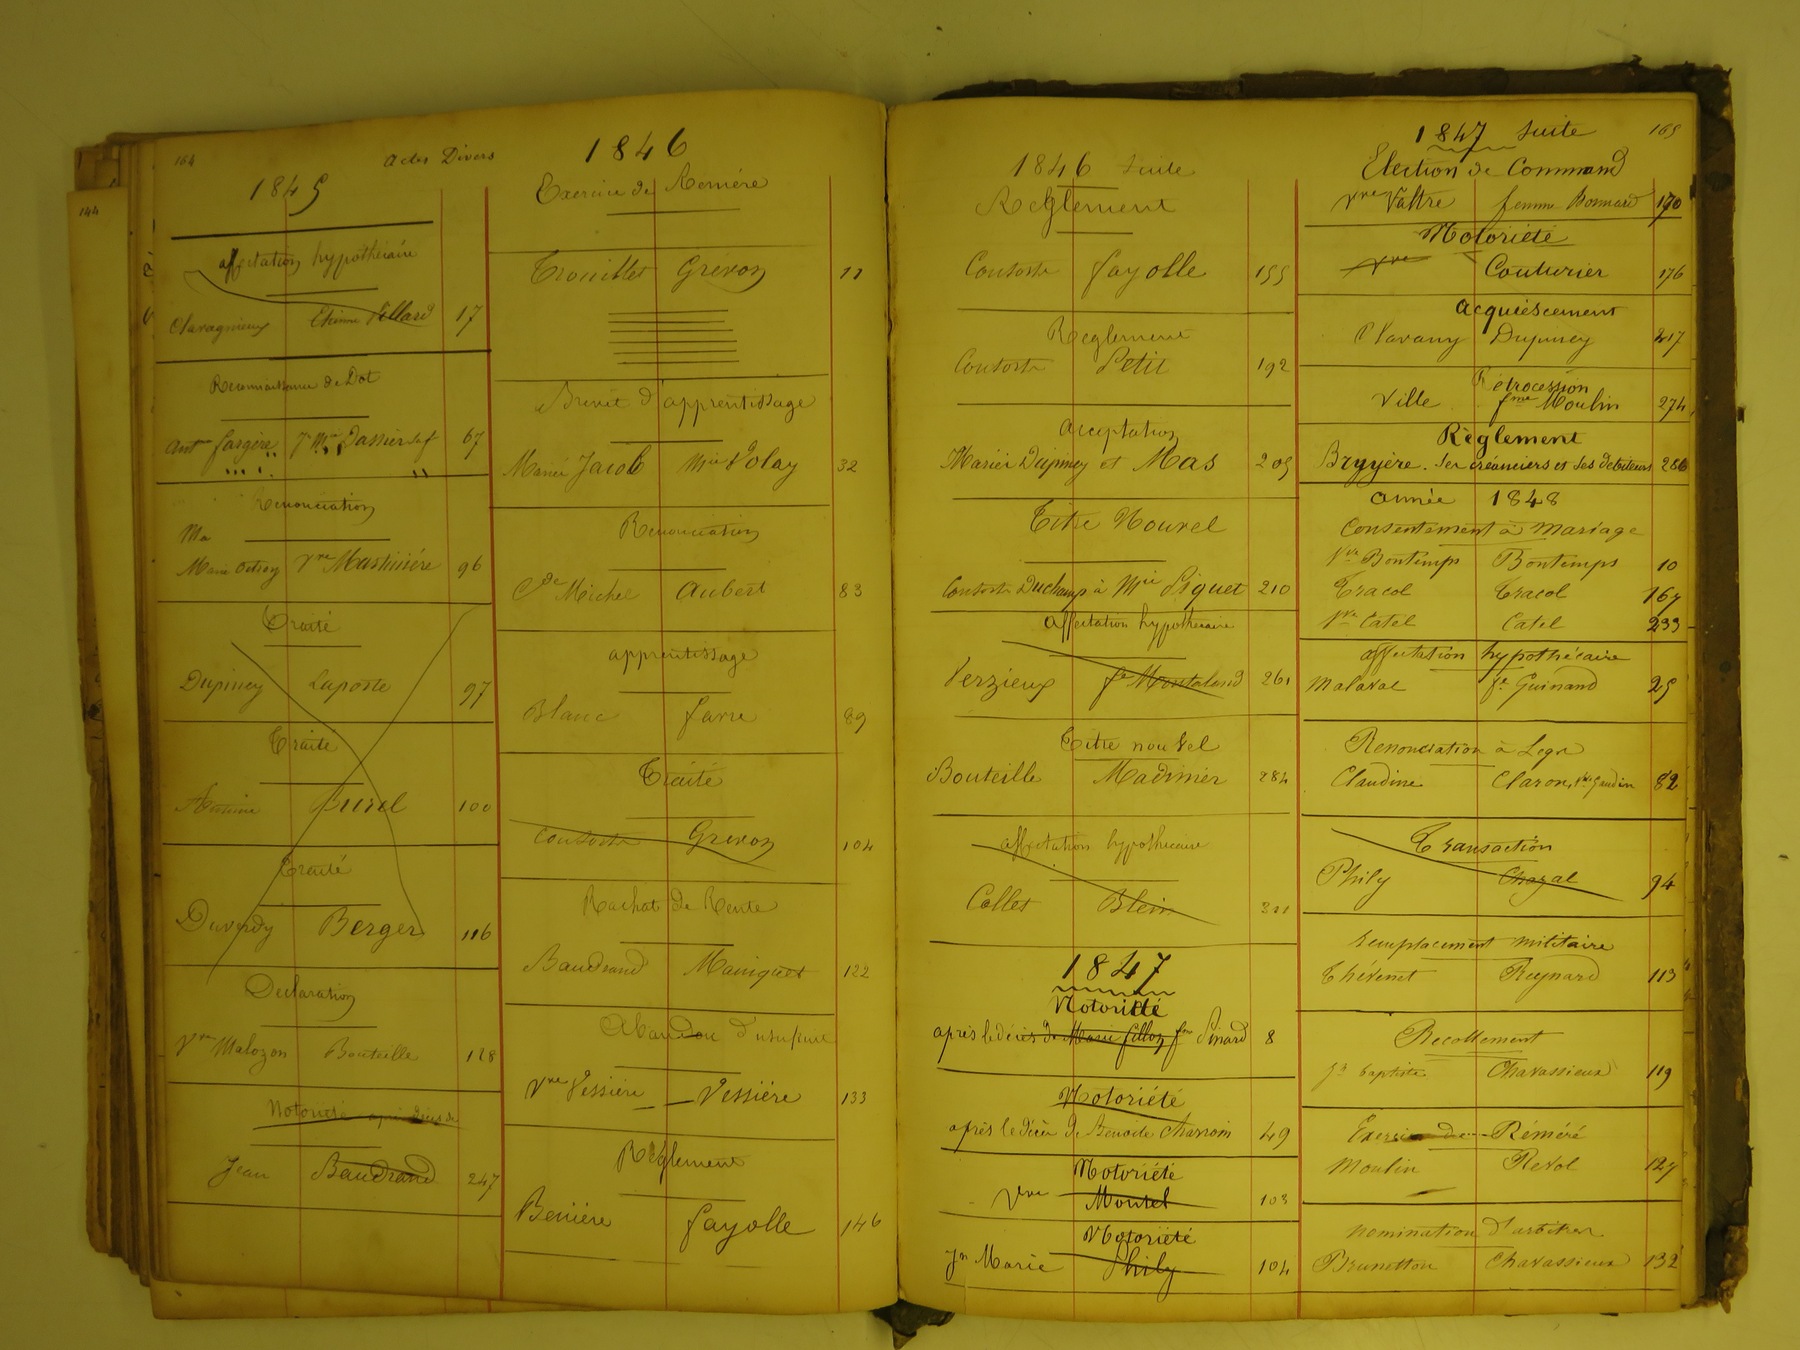 164
Actes Divers
1845
affectation hypothécaire
Chavagnieux Etienne Villard 17
Reconnaissance de Dot
Ant.ne fargère 67
Renonciation
Ma
Marie vve Mashinière 96
Traité
Dupiney Laposte 97
Traité
Antoine Burel 100
Traité
Duverdy Berger 116
Declaration
Vve Malozon Bouteille 128
Notoriété après décès de
Jean Baudrand 247
1846
Exercice de Reméré
Trouillet Grévon 11
Brevet d'apprentissage
Mariés Jacob Mie Volay 32
Renonciation
Michel Aubert 83
apprentissage
Blanc favre 89
Traité
Consorts Grevon 104
Rachat de Rente
Baudrand Maniquet 122
Abandon d'usufruit
Vve Vessière Vessière 133
Règlement
Benière fayolle 146
1846 suite
Règlement
Consorts fayolle 155
Reglement
Consorts Petit 192
Acceptation
Mariés Dupiney et Mas 205
Titre Nouvel
Consorts Duchamp à Mie Piquet 210
affectation hypothécaire
Verzieux fe Montaland 261
Titre nouvel
Bouteille Madinier 284
affectation hypothécaire
Collet Blein 311
1847
Notoriété
après le décès de Marie fillon fme Pinard 8
Notoriété
après le décès de Benoite Charroin 49
Notoriété
Vve Montel 103
Notoriété
Jn Marie Phily 104
165
1847 suite
Election de Command
Vve Valtre femme Bonnard 170
Notoriété
Vve Couturier 176
Acquiéscement
Dupiney 217
Rétrocession
Ville fme Moulin 274
Règlement
Bruyère. Ses créanciers et ses debiteurs 286
année 1848
Consentement à mariage
Vve Bontemps Bontemps 10
Tracol Tracol 167
Vve Catel Catel 233
affectation hypothécaire
Malaval fe Guinand 25
Renonciation à Legs
Claudine Claron, Vve Gaudin 82
Transaction
Phily Chazal 94
remplacement militaire
Thévenet Reynard 113
Recollement
Jn baptiste Chavassieux 119
Exercice de Réméré
Moulin Revol 127
nomination d'arbitres
Brunetton Chavassieux 132
144